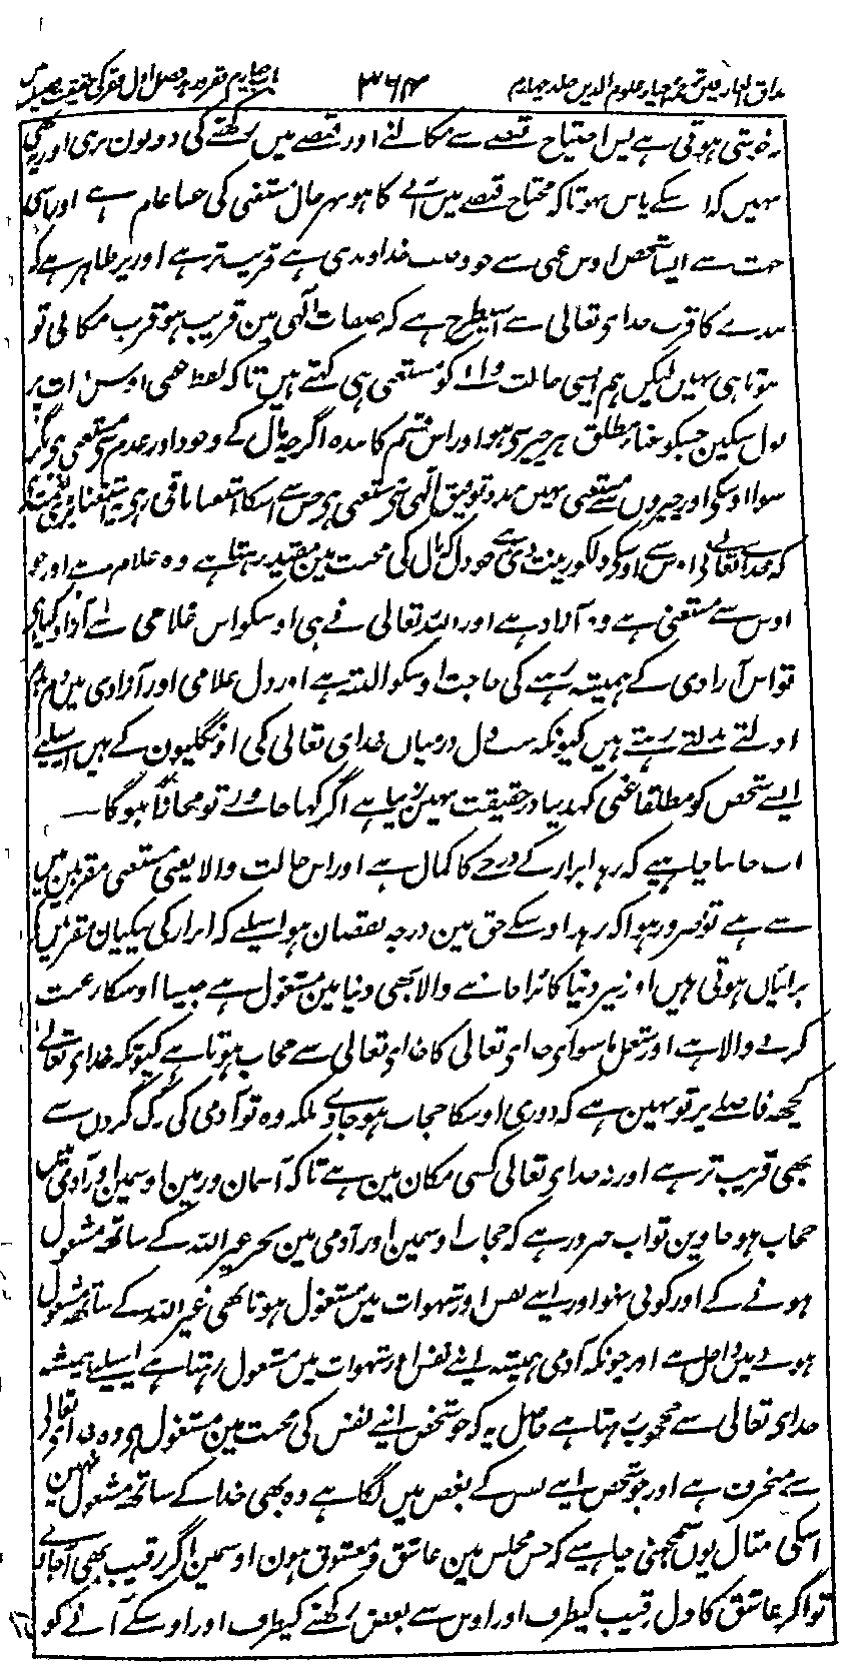 مذاق العارفین ترجمہ احیاء علوم الدین جلد چہارم ۳۶۴ باب چہارم فقر و زہد فصل اول فقر کی حقیقت میں
ہوتی ہے پس احتیاج قبضے سے نکالنے اور قبضے میں رکھنے کی دونون رہی اور
نہیں کہ اسکے پاس ہو تاکہ محتاج قبضے میں آنے کا ہو بہر حال مستغنی کی غنا عام ہے اور اسی
جہت سے ایسا شخص اوس غنی سے جو وصف خداوندی ہے قریب تر ہے اور یہ ظاہر ہے کہ
بندے کا قرب خدای تعالی سے اسیطرح ہے کہ صفات الٰہی مین قریب ہو قرب مکانی تو
ہوتا ہی نہیں لیکن ہم ایسی حالت والے کو مستغنی ہی کہتے ہیں تاکہ لفظ غنی اوس ذات پر
بول سکین جسکو غناء مطلق ہر چیز سے ہو اور اس قسم کا بندہ اگرچہ مال کے وجود اور عدم سے مستغنی ہو مگر
سوا اوسکی اور چیزوں سے مستغنی نہیں مدد توفیق الٰہی سے مستغنی ہو جس سے اسکا استغنا باقی رہے
کہ خدا تعالی نے اوس سے اوسکی دلکو زینت دی ہے جو دل کہ مال کی محبت مین مقید رہتا ہے وہ غلام ہے اور جو
اوس سے مستغنی ہے وہ آزاد ہے اور اللہ تعالی نے ہی اوسکو اس غلامی سے آزاد کیا ہے
تو اس آزادی کے ہمیشہ رہنے کی حاجت اوسکو البتہ ہے اور دل غلامی اور آزادی مین دم بدم
اولتے بدلتے رہتے ہیں کیونکہ سب دل درمیان خدای تعالی کی اونگلیون کے ہیں اسیلیے
ایسے شخص کو مطلقا غنی کہدینا درحقیقت نہین زیبا ہے اگر کہا جاوے تو مجازاً ہو گا —
اب جاننا چاہیے کہ زہد ابرار کے درجے کا کمال ہے اور اس حالت والا یعنی مستغنی مقربین میں
سے ہے تو ضرور ہوا کہ زہد اوسکے حق مین درجہ نقصان ہو اسلیے کہ ابرار کی نیکیان مقربین کی
برائیاں ہوتی ہیں اور نیز دنیا کا برا جاننے والا بھی دنیا مین مشغول ہے جیسا اوسکا رغبت
کرنے والا ہے اور شغل ماسوای خدای تعالی کا خدای تعالی سے حجاب ہوتا ہے کیونکہ خدای تعالے
کچھ فاصلے پر تو نہین ہے کہ دوری اوسکا حجاب ہو جاوے بلکہ وہ تو آدمی کی رگ گردن سے
بھی قریب تر ہے اور نہ خدای تعالی کسی مکان مین ہے تاکہ آسمان و زمین اوسمین اور آدمی میں
حجاب ہو جاوین تو اب ضرور ہے کہ حجاب اوسمین اور آدمی مین بجز غیر اللہ کے ساتھ مشغول
ہونے کے اور کوئی نہو اور اپنے نفس اور شہوات میں مشغول ہونا بھی غیر اللہ کے ساتھ مشغول
ہونے میں داخل ہے اور چونکہ آدمی ہمیشہ اپنے نفس اور شہوات میں مشغول رہتا ہے اسلیے ہمیشہ
خدای تعالی سے محجوب رہتا ہے حاصل یہ کہ جو شخص اپنے نفس کی محبت مین مشغول ہو وہ خدای تعالی
سے منحرف ہے اور جو شخص اپنے نفس کے بغض میں لگا ہے وہ بھی خدا کے ساتھ مشغول نہین
اسکی مثال یوں سمجھنی چاہیے کہ جس مجلس مین عاشق و معشوق ہون اوسمین اگر رقیب بھی آجاے
تو اگر عاشق کا دل رقیب کیطرف اور اوس سے بغض رکھنے کیطرف اور اوسکے آنے کو